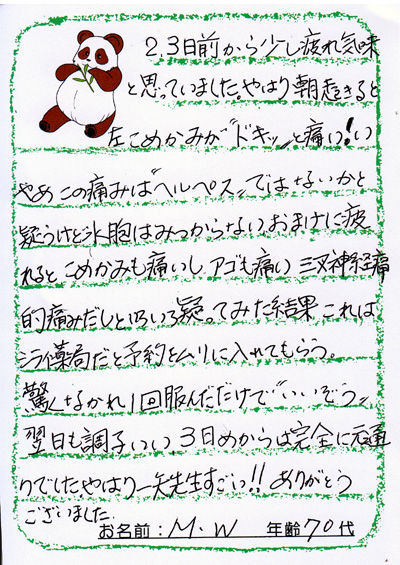 2.3日前から少し疲れ気味
と思っていましたやはり朝起きると
左こめかみが"ドキッ"と痛い!い
やめこの痛みは"ヘルペス"ではないかと
疑うけど水胞はみつからないおまけに疲
れるとこめかみも痛いしアゴも痛い三叉神経痛
的痛みだしといろいろ疑ってみた結果これは
シライ薬局だと予約をムリに入れてもらう。
驚くなかれ1回服んだだけで"いいぞう"
翌日も調子いい3日めからは完全に元通
りでしたやはり一矢先生すごい!!ありがとう
ございました.
お名前:M.W 年齢70代